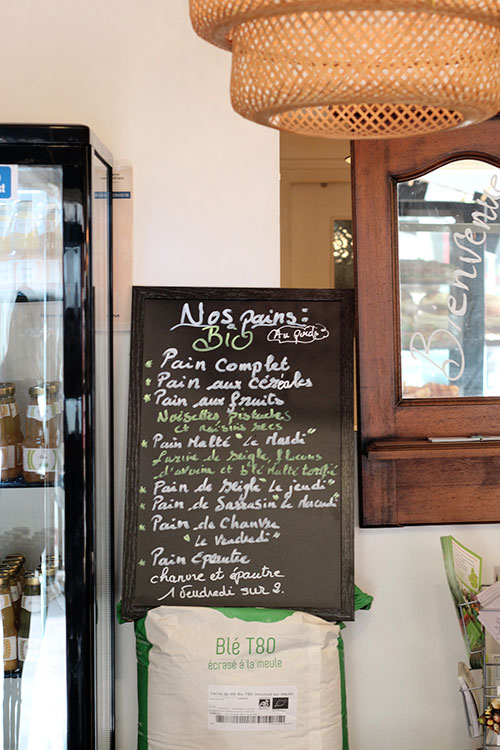 Nos pains:
BIO
Au poids
* Pain Complet
* Pain aux céréales
* Pain aux fruits
Noisettes, pistaches
et raisins secs
* Pain Malté "Le Mardi"
farine de seigle, flocons
d'avoine et blé Malté torréfié
* Pain de Seigle "Le jeudi"
* Pain de Sarrasin "Le Mercredi"
* Pain de Chanvre
"Le Vendredi"
Pain Épeautre
chanvre et épautre
1 Vendredi sur 2.
Bienvenue
Blé T80
écrasé à la meule